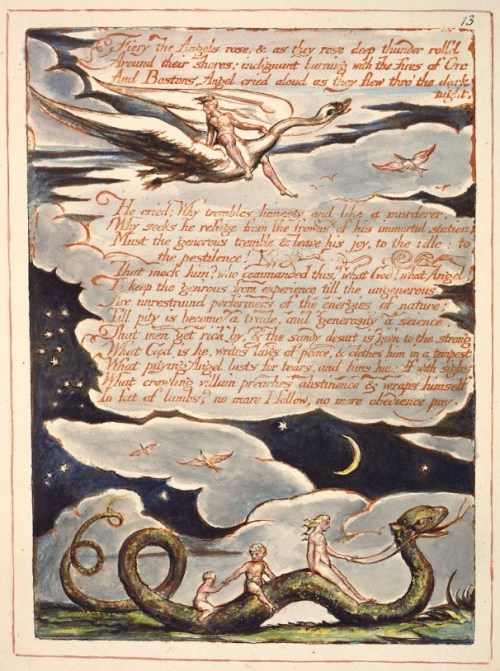 13
Fiery the Angels rose, & as they rose deep thunder roll'd
Around their shores: indignant burning with the fires of Orc
And Bostons Angel cried aloud as they flew thro' the dark
night.
He cried: Why trembles honesty and like a murderer,
Why seeks he refuge from the frowns of his immortal station!
Must the generous tremble & leave his joy, to the idle: to
the pestilence!
That mock him? who commanded this? what God? what Angel!
To keep the genrous from experience till the ungenerous
Are unrestraind performers of the energies of nature;
Till pity is become a trade, and generosity a science,
That men get rich by, & the sandy desart is givn to the strong
What God is he, writes laws of peace, & clothes him in a tempest
What pitying Angel lusts for tears, and fans himself with sighs
What crawling villain preaches abstinence & wraps himself
In fat of lambs? no more I follow, no more obedience pay.